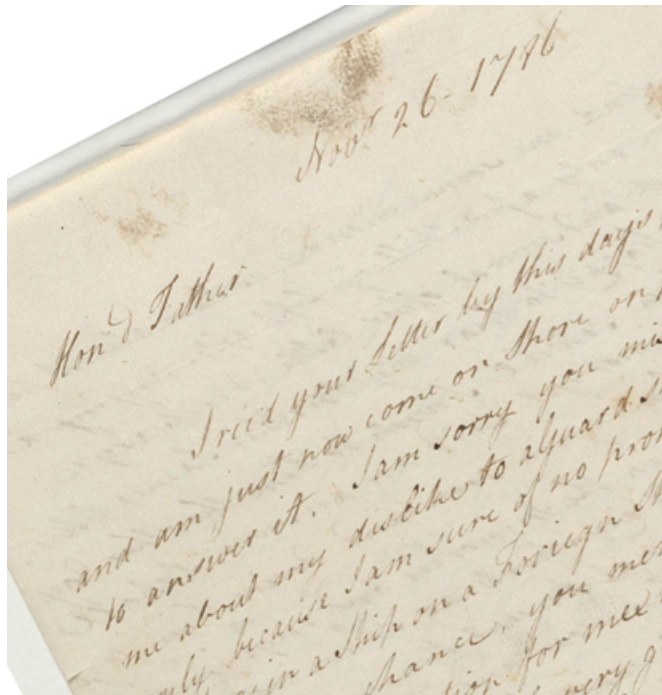 Novr 26. 1786
Hond Father
I recd your Letter by this days
and am just now come on Shore on
to answer it. I am sorry you
me about my dislike to a Guard
because I am sure of no
in a Ship on a Foreign
chance, you
for mee
every